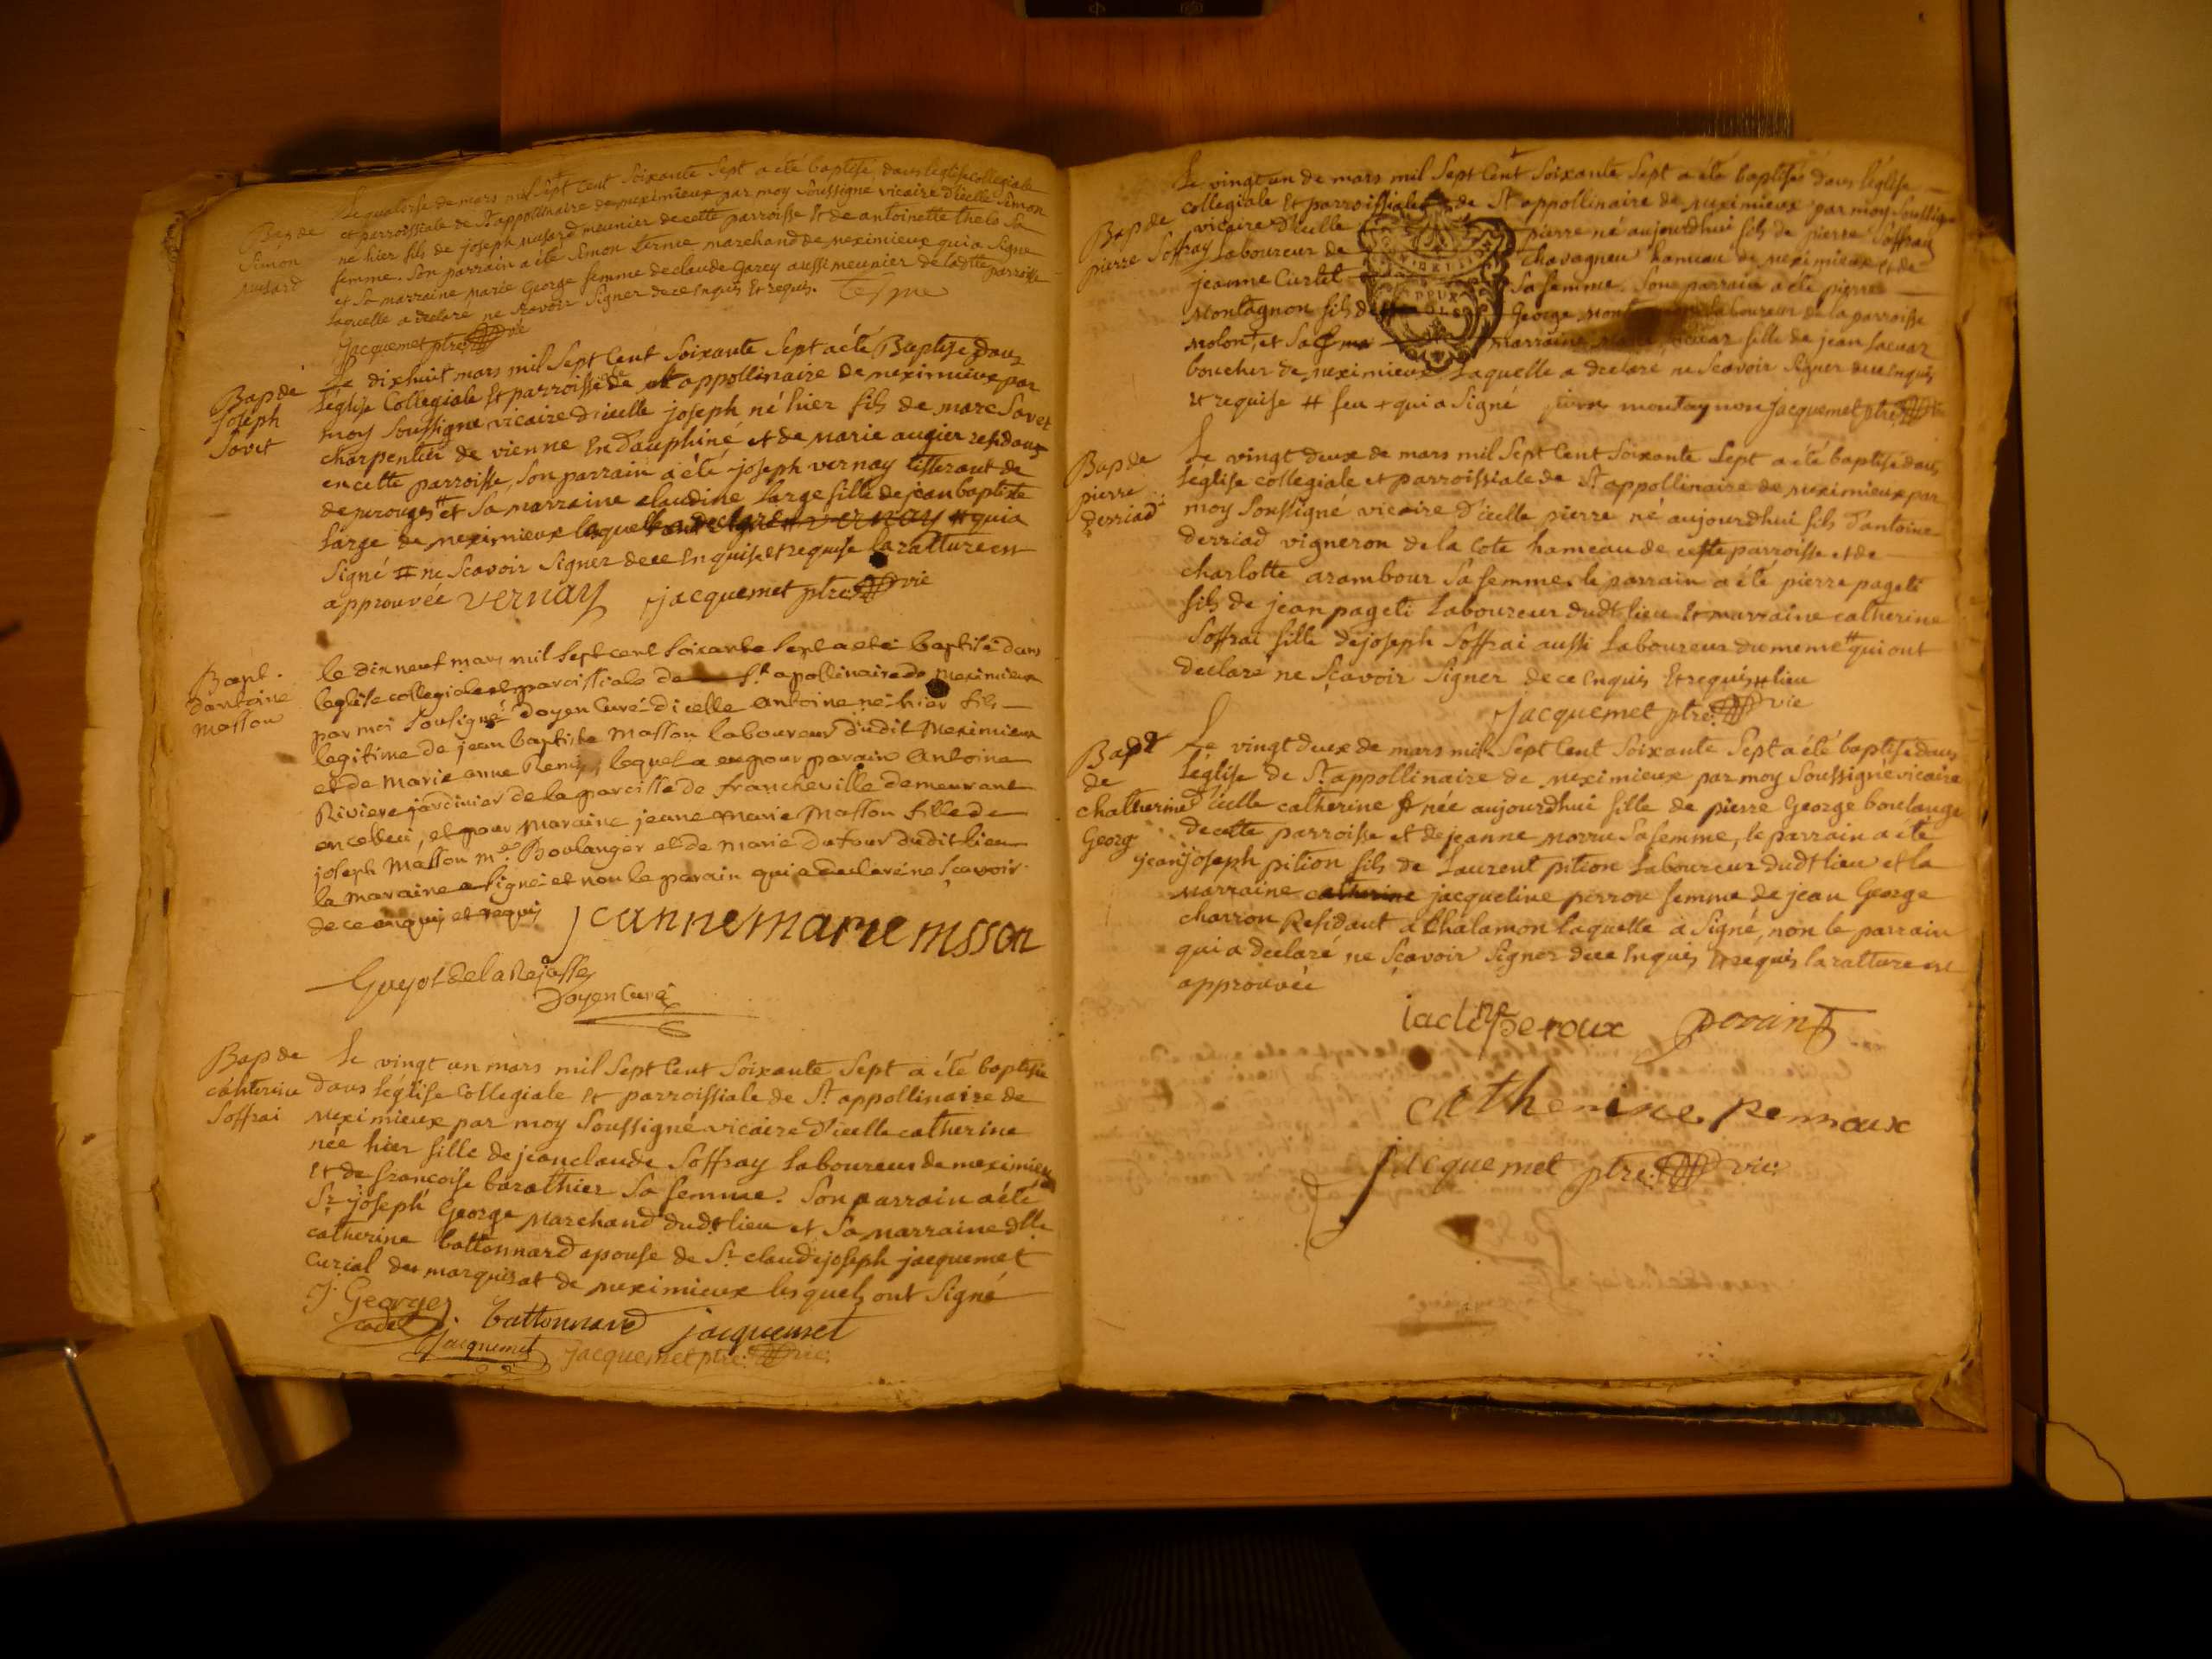 Le quatorse de mars mil Sept Cent Soixante Sept a été baptisé dans leglise collegiale
et parroissiale de St. appollinaire de meximieux par moy Soussigné vicaire d'icelle Simon
Bap de
Simon
né hier fils de joseph musard meunier de cette parroisse Et de antoinette
femme. Son parrain a été Simon marchand de meximieux qui a Signé
et Sa marraine marie George femme de claude Garey aussi meunier de ladtte parroisse
laquelle a declaré ne Scavoir Signer de ce Enquis Et requis.
jacquemet ptre vic
Bap de
joseph
Savet
Le dixhuit mars mil Sept Cent Soixante Sept a été Baptisé dans
l'eglise Collegiale Et parroissiale de St appollinaire de meximieux par
moy Soussigné vicaire d'icelle joseph né hier fils de marc Savet
charpentier de vienne En dauphiné et de marie augier residans
en cette parroisse, Son parrain a été joseph vernay tisserant de
perouges # et Sa marraine claudine Large fille de jean baptiste
Large de meximieux laquelle a declaré # qui a
Signé # ne Scavoir Signer de ce Enquise et requise la ratture est
approuvée vernay jacquemet ptre vic
Bapt.
d'antoine
masson
le dix neuf mars mil Sept cent Soixante Sept a eté baptisé dans
leglise collegiale et paroissiale de St. apollinaire de meximieux
par moi Sousigné doyen Curé d'icelle antoine né hier fils
legitime de jean baptiste Masson laboureur dudit Meximieux
et de Marie anne Remy, lequel a eu pour parain Antoine
Riviere jardinier de la paroisse de francheville demeurant
en celleci, et pour maraine jeanne Marie Masson fille de
joseph Masson md. Boulanger et de Marie Dufour dudit lieu
la maraine a signé et non le parain qui a declaré ne Scavoir
de ce enquis et requis jeanne marie msson
Guyot de la Rejasse
Doyen Curé
Bap de
catherine
Soffrai
Le vingt un mars mil Sept Cent Soixante Sept a été baptisée
dans l'église Collegiale Et parroissiale de St. appollinaire de
meximieux par moy Soussigné vicaire d'icelle catherine
née hier fille de jean claude Soffray Laboureur de meximieux
Et de francoise barathier Sa femme. Son parrain a été
Sr. joseph George marchand dudt lieu et Sa marraine dlle
catherine battonnard epouse de Sr. claude joseph jacquemet
curial du marquisat de meximieux lesquels ont Signé
J. George
cadet battonnard jacquemet
jacquemet jacquemet ptre: vic:
Le vingt un de mars mil Sept Cent Soixante Sept a été baptisé dans l'église
collegiale Et parroissiale de St appollinaire de meximieux par moy Soussigné
Bap de
pierre Soffray
vicaire d'icelle pierre né aujourdhui fils de pierre Soffray
Laboureur de chavagneu hameau de meximieux et de
jeanne Curlet Sa femme. Son parrain a été pierre
Montagnon fils de # George laboureur de la parroisse
molon, et Sa marraine fille de jean
boucher de meximieux Laquelle a declaré ne Scavoir Signer de ce Enquis
et requise # feu + qui a Signé montagnon jacquemet ptre vic
Bap de
pierre
derriad
Le vingt deux de mars mil Sept Cent Soixante Sept a été baptisé dans
l'église collegiale et parroissiale de St. appollinaire de meximieux par
moy Soussigné vicaire d'icelle pierre né aujourdhui fils d'antoine
derriad vigneron de la Cote hameau de cette parroisse et de
charlotte arambour Sa femme. le parrain a été pierre pageti
fils de jean pageti Laboureur dudt lieu Et marraine catherine
Soffrai fille de joseph Soffrai aussi Laboureur du meme # qui ont
declaré ne Scavoir Signer de ce Enquis Et requis # lieu
jacquemet ptre: vic
Bapt
de
chatherine
Georg
Le vingt deux de mars mil Sept Cent Soixante Sept a été baptisé dans
l'église de St. appollinaire de meximieux par moy Soussigné vicaire
d'icelle catherine née aujourdhui fille de pierre George boulange
de cette parroisse et de jeanne morru Sa femme, le parrain a été
jean joseph pition fils de Laurent pition Laboureur dudt lieu et la
marraine catherine jacqueline perrou femme de jean George
charron Residant a Chalamon laquelle a Signé, non le parrain
qui a declaré ne Scavoir Signer de ce Enquis Et requis la ratture est
approuvée
peroux
catherine pennoux
jacquemet ptre: vic: